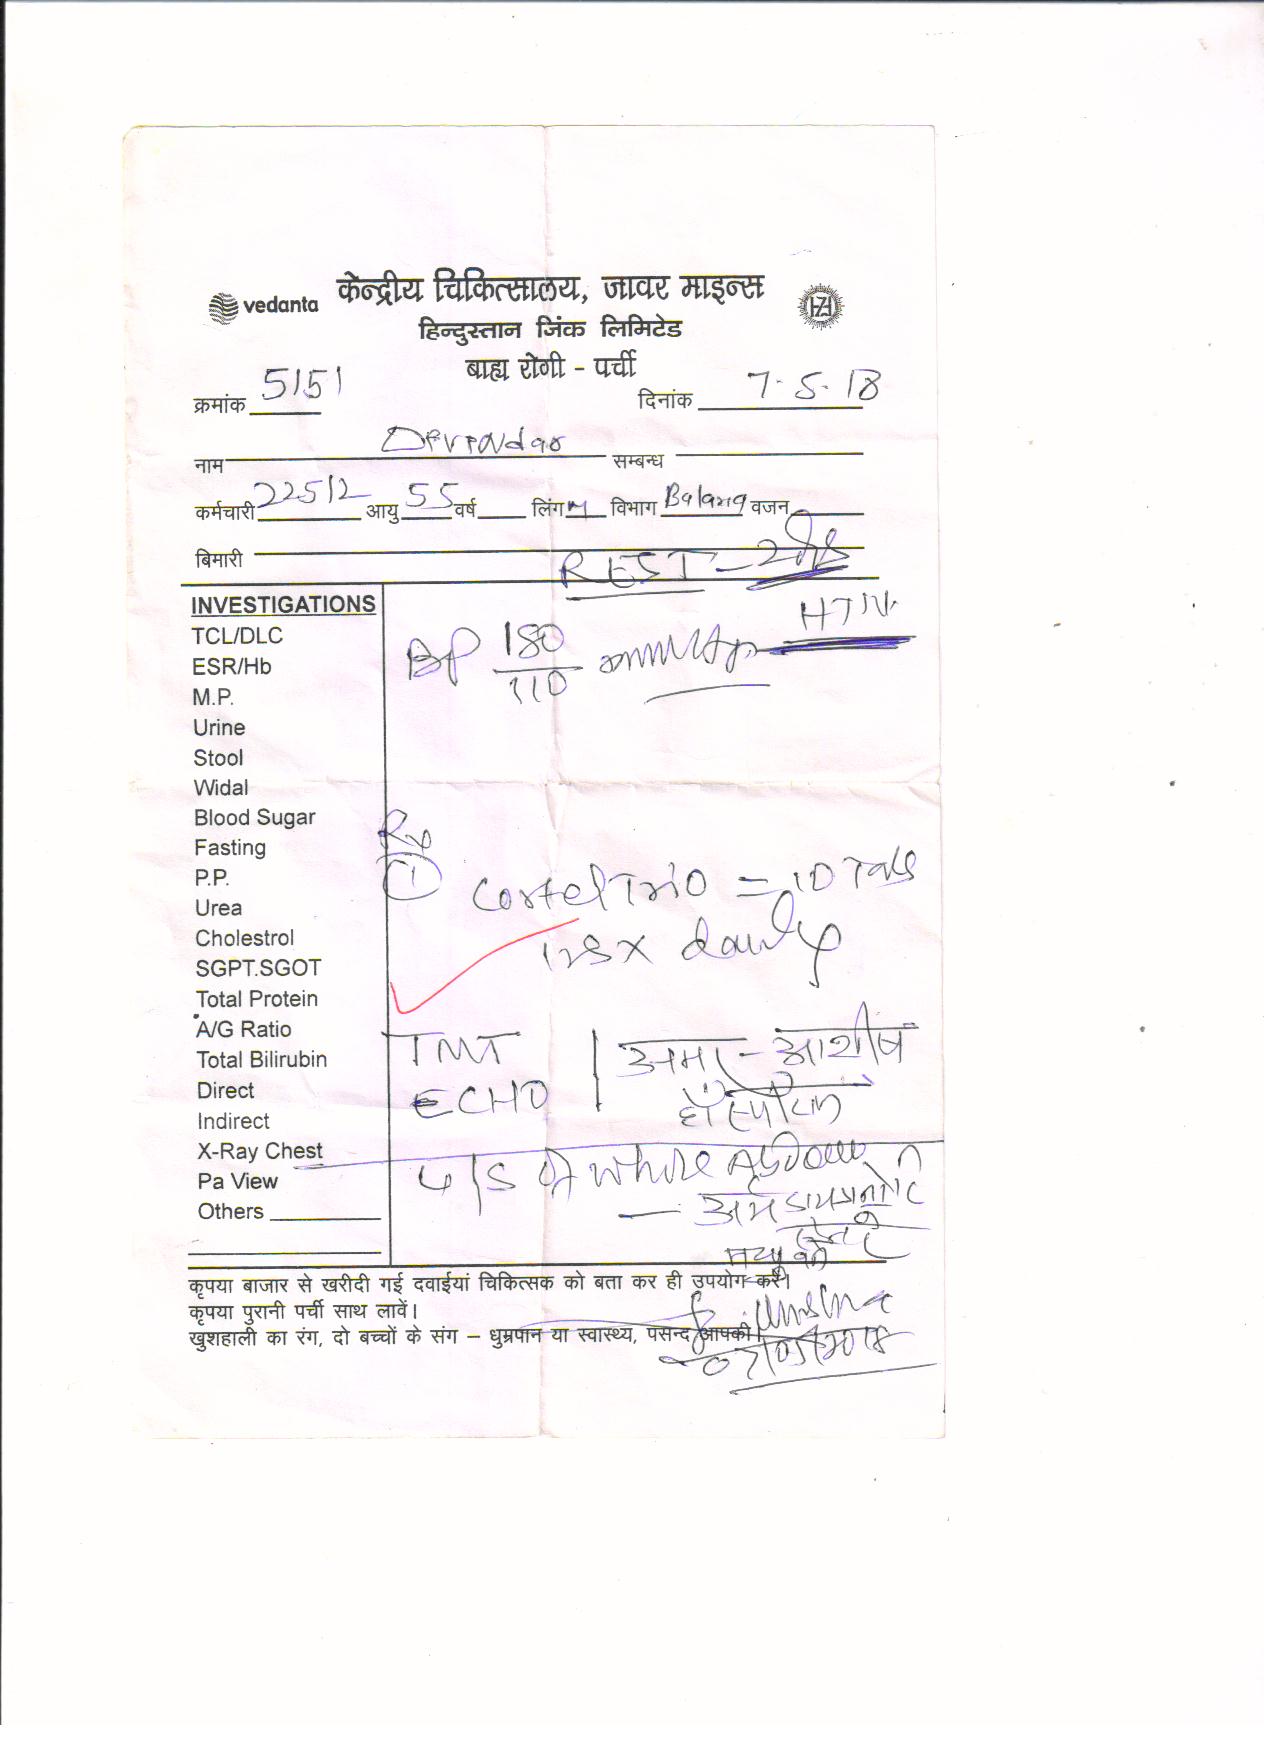 vedanta केन्द्रीय चिकित्सालय, जावर माइन्स
हिन्दुस्तान जिंक लिमिटेड
बाह्य रोगी - पर्ची
क्रमांक 5151 दिनांक 7-5-18
नाम Devendar सम्बन्ध
कर्मचारी 22512 आयु 55 वर्ष लिंग M विभाग वजन
बिमारी
REST -
HTN
BP 180/110 mmHg
INVESTIGATIONS
TCL/DLC
ESR/Hb
M.P.
Urine
Stool
Widal
Blood Sugar
Fasting
P.P.
Urea
Cholestrol
SGPT.SGOT
Total Protein
A/G Ratio
Total Bilirubin
Direct
Indirect
X-Ray Chest
Pa View
Others
Rx
1 Cortel Trio = 10 Tabs
daily
TMT
ECHO
हॉस्पीटल
U/S of whole Abdomen
कृपया बाजार से खरीदी गई दवाईयां चिकित्सक को बता कर ही उपयोग करें।
कृपया पुरानी पर्ची साथ लावें।
खुशहाली का रंग, दो बच्चों के संग – धुम्रपान या स्वास्थ्य, पसन्द आपकी।
07/05/2018